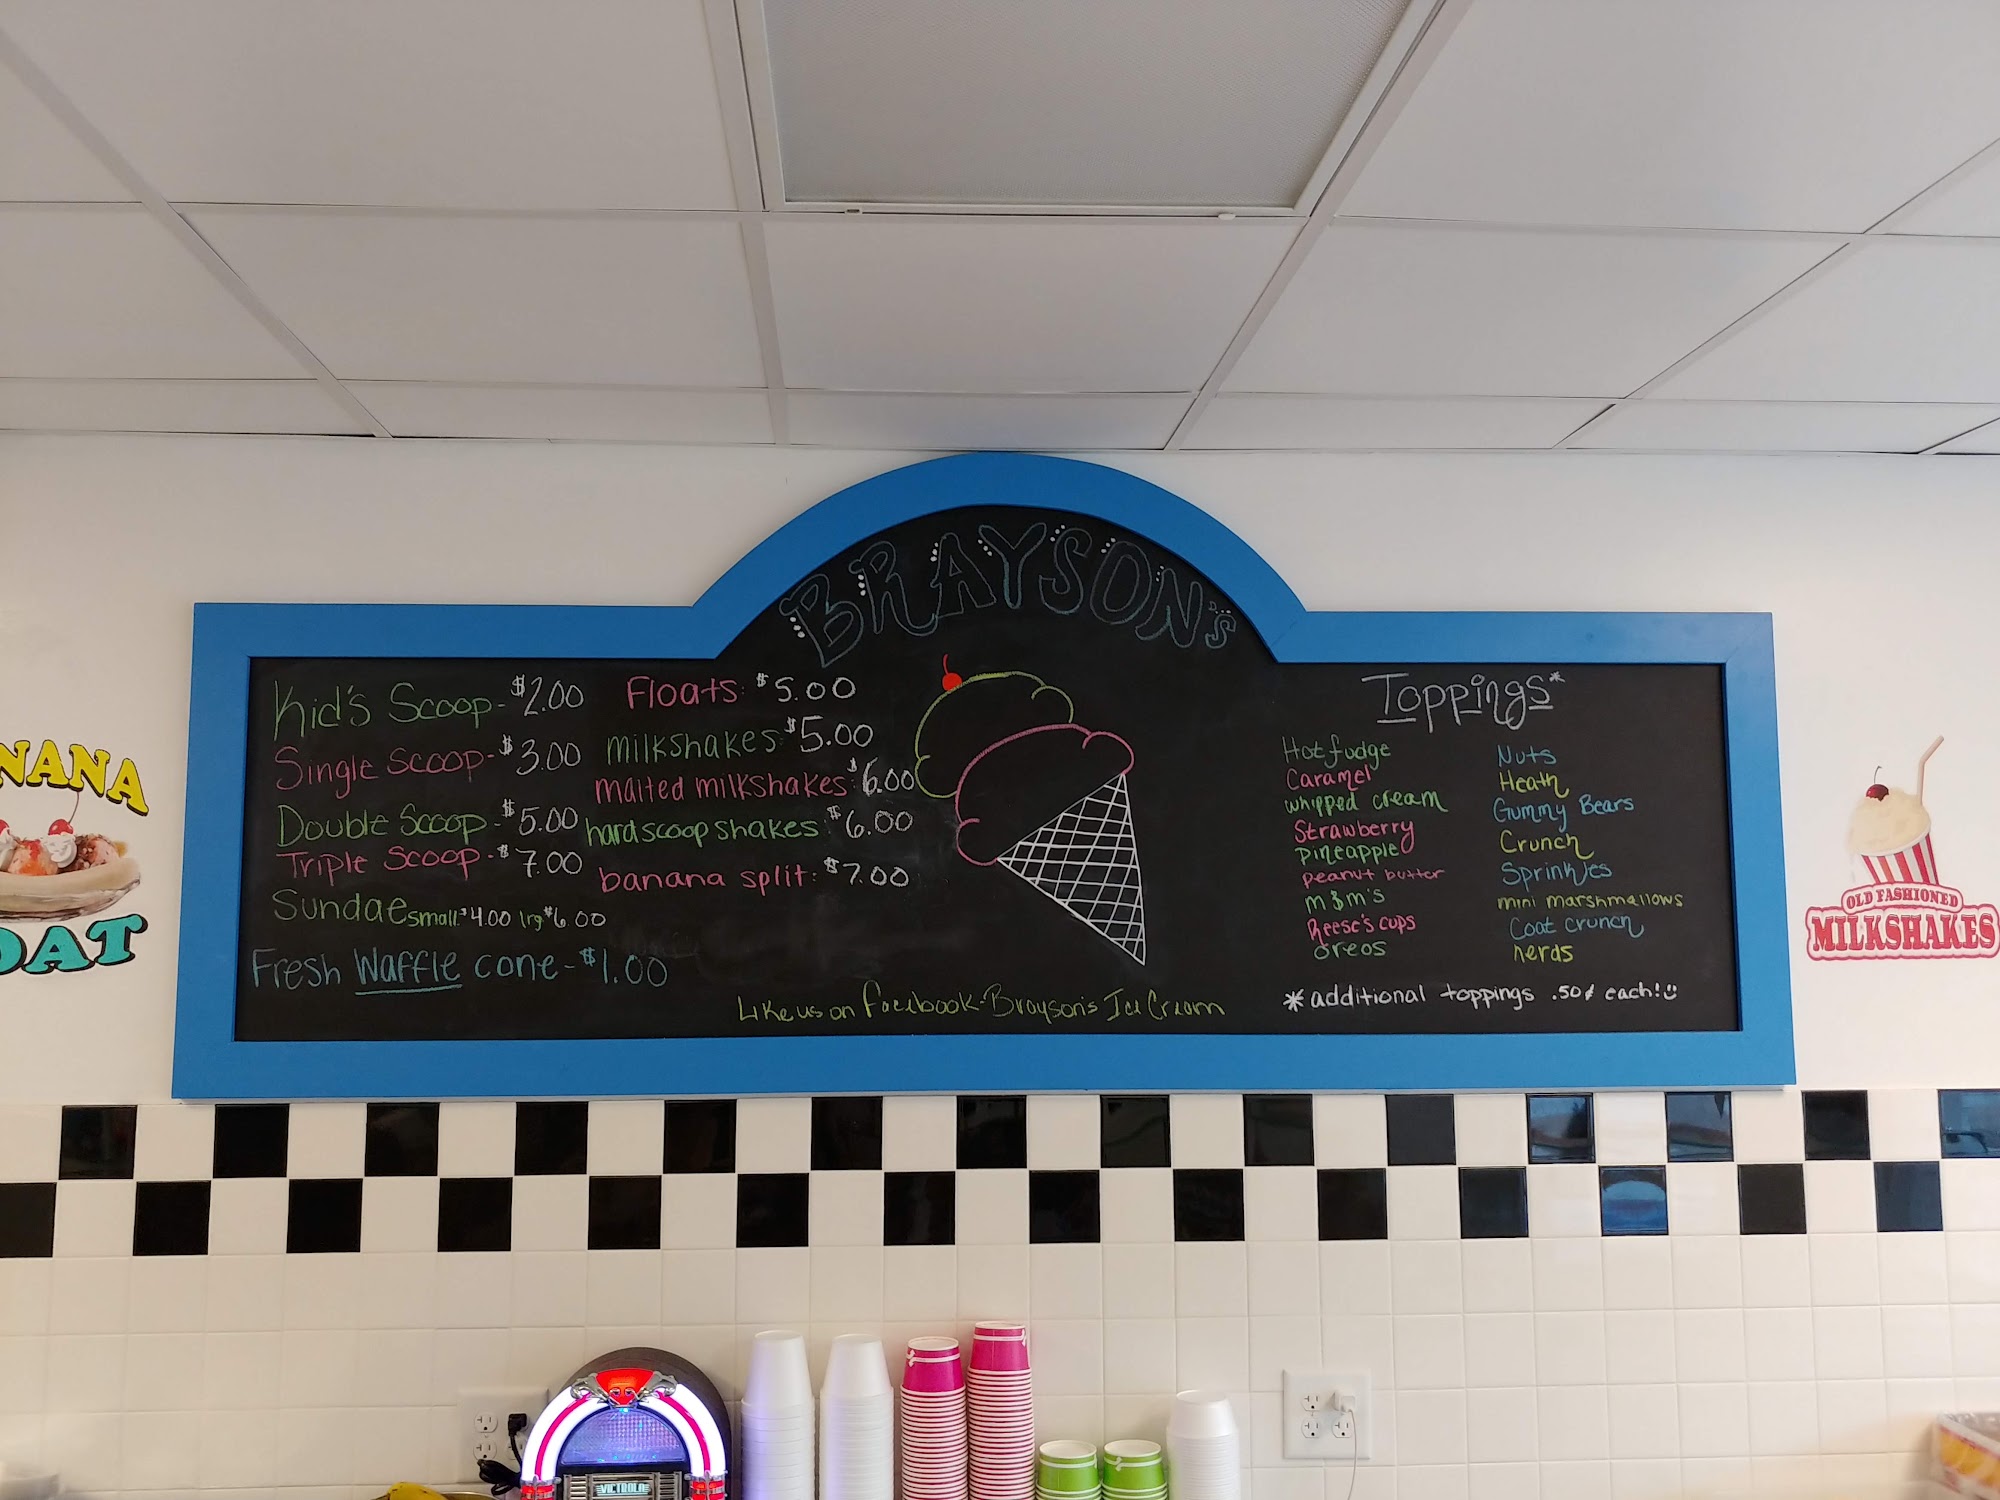 BRAYSON'S
Kid's Scoop - $2.00
Single Scoop - $3.00
Double Scoop - $5.00
Triple Scoop - $7.00
Sundae small: $4.00 lrg $6.00
Fresh Waffle cone - $1.00
Floats: $5.00
milkshakes: $5.00
malted milkshakes: $6.00
hard scoop shakes: $6.00
banana split: $7.00
Like us on Facebook - Brayson's Ice Cream
Toppings*
Hot fudge
Caramel
whipped cream
Strawberry
pineapple
peanut butter
m&m's
Reese's cups
oreos
Nuts
Heath
Gummy Bears
Crunch
Sprinkles
mini marshmallows
Coat crunch
nerds
*additional toppings .50¢ each!
NANA
OAT
OLD FASHIONED
MILKSHAKES
VICTROLA